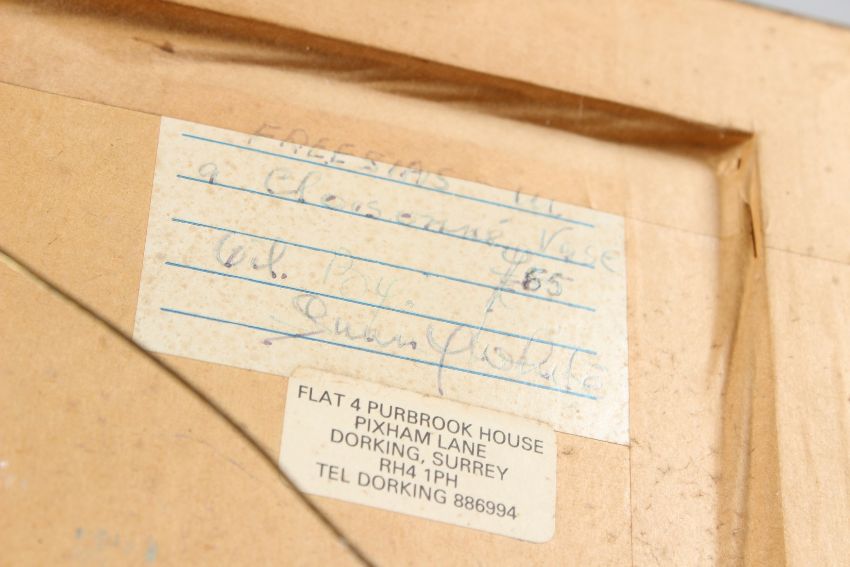 FREESIAS in
a Cloisonné Vase
Oil. By. £65
White
FLAT 4 PURBROOK HOUSE
PIXHAM LANE
DORKING, SURREY
RH4 1PH
TEL DORKING 886994